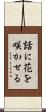 話に花を
咲かせる